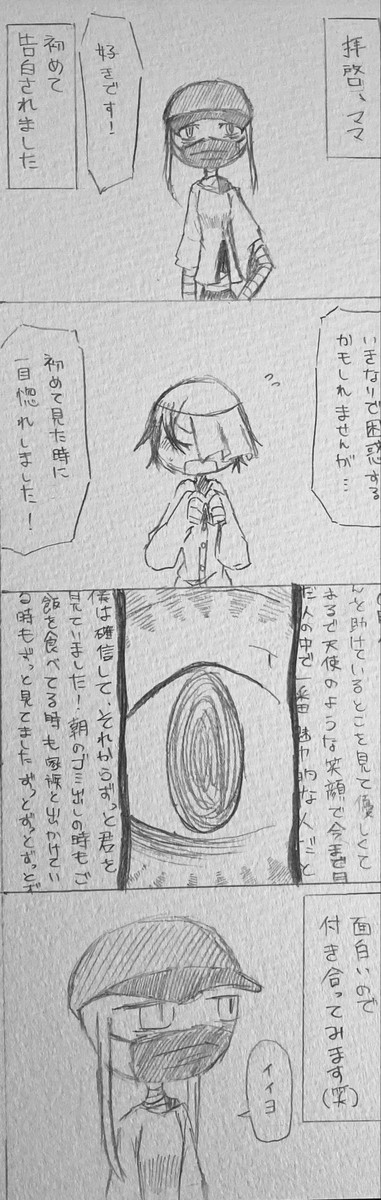 拝啓、ママ
好きです！
初めて
告白されました
いきなりで困惑する
かもしれませんが…
初めて見た時に
一目惚れしました！
んを助けているとこを見て優しくて
まるで天使のような笑顔で今まで見
だ人の中で一番魅力的な人だと
僕は確信して、それからずっと君を
見ていました！朝のゴミ出しの時もご
飯を食べてる時も家族と出かけてい
る時もずっと見てましたずっとずっとず
面白いので
付き合ってみます(笑)
イイヨ